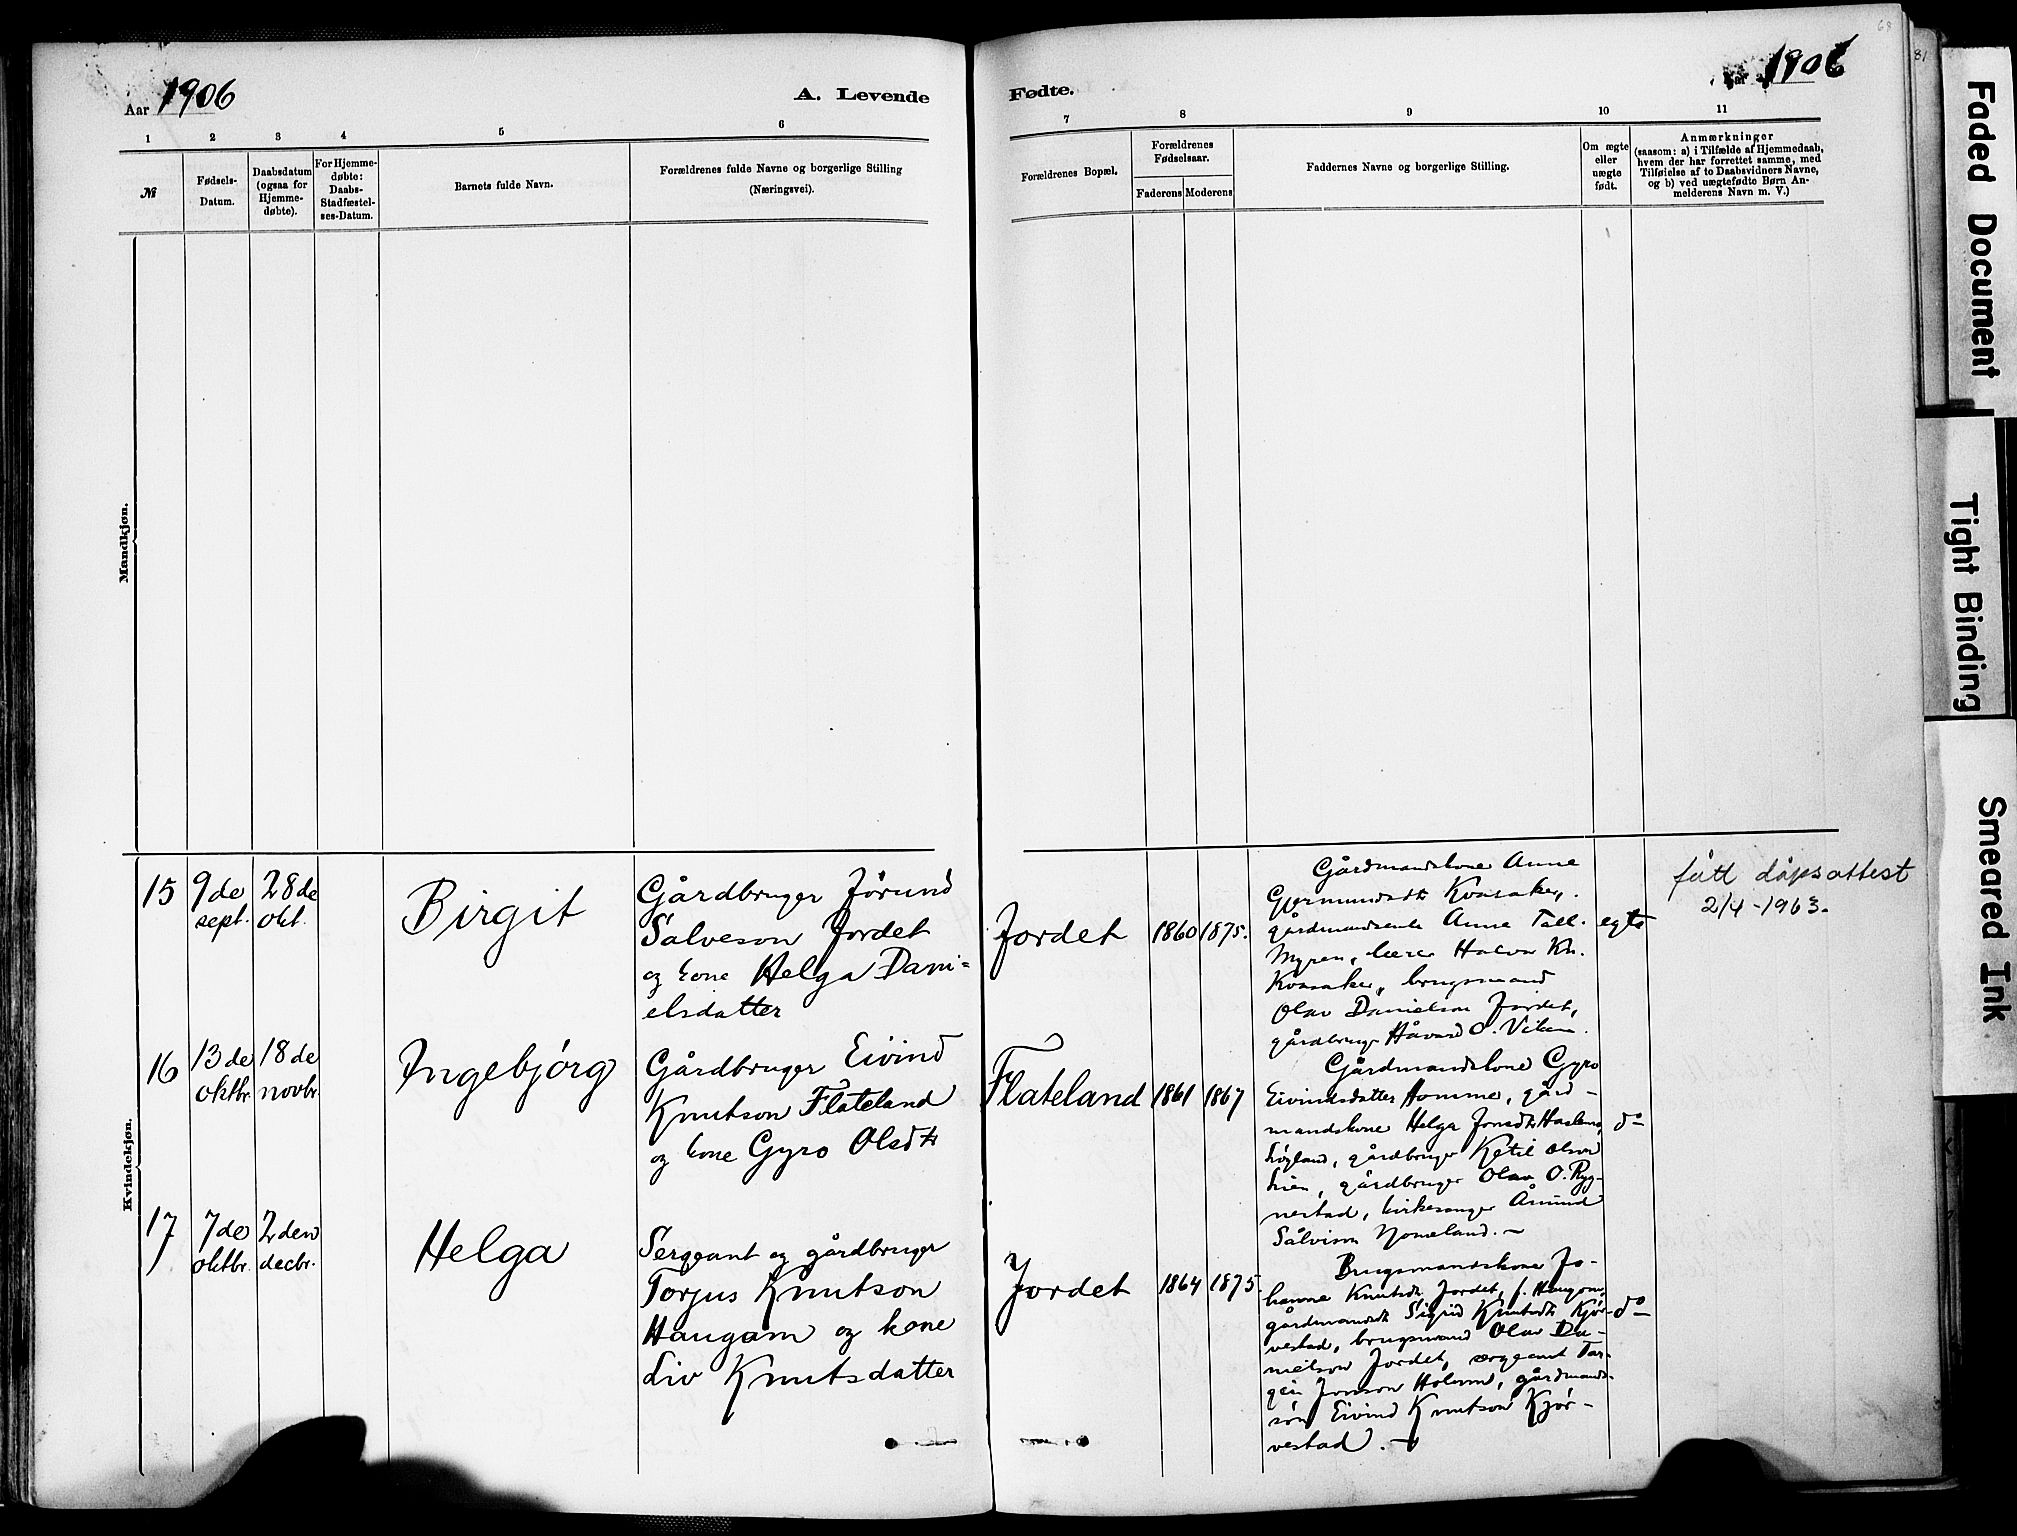 Aar 1906
A. Levende
Fødte.
Aar 1906
68
81
1 2 3 4 5 6 7 8 9 10 11
№
Fødsels-
Datum.
Daabsdatum
(ogsaa for
Hjemme-
døbte).
For Hjemme-
døbte:
Daabs-
Stadfæstel-
ses-Datum.
Barnets fulde Navn.
Forældrenes fulde Navne og borgerlige Stilling
(Næringsvei).
Forældrenes Bopæl.
Forældrenes
Fødselsaar.
Faderens Moderens
Faddernes Navne og borgerlige Stilling.
Om ægte
eller
uægte
født.
Anmærkninger
(saasom: a) i Tilfælde af Hjemmedaab,
hvem der har forrettet samme, med
Tilføielse af to Daabsvidners Navne,
og b) ved uægtefødte Børn An-
melderens Navn m. V.)
Mandkjøn.
Kvindekjøn.
15
9de
sept.
28de
okt.
Birgit
Gårdbruger Jørund
Salveson Jordet
og kone Helga Dani-
elsdatter
Jordet
1860
1875.
Gårdmandskone Anne
Gjermundsdtr Kvasaker,
gårdmandsenke Anne Tall.
Myren, lærer Halvor Kn.
Kvasaker, brugsmand
Olav Danielson Jordet,
gårdbruger Håvard O. Viken.
egte
fått dåpsattest
2/4-1963.
16
13de
oktbr.
18de
novbr.
Ingebjørg
Gårdbruger Eivind
Knutson Flateland
og kone Gyro Olsdtr
Flateland
1861
1867
Gårdmandskone Gyro
Eivindsdatter Homme, gård-
mandskone Helga Jonsdtr
gårdbruger Ketil Olson
gårdbruger Olav O. Ryg-
nestad, kirkesanger Åmund
Sålvison Nomeland.
do
17
7de
oktbr.
2den
decbr.
Helga
Sergeant og gårdbruger
Torjus Knutson
Haugom og kone
Liv Knutsdatter
Jordet
1864
1875.
Brugsmandskone Jo-
hanne Knutsdtr Jordet, f. Haugom,
gårdmandsdtr Sigrid Knutsdtr Kjør-
vestad, brugsmand Olav Da-
nielson Jordet, sergeant Tor-
geir Jonson gårdmands-
søn Eivind Knutson Kjør-
vestad.
do
Faded Document
Tight Binding
Smeared Ink